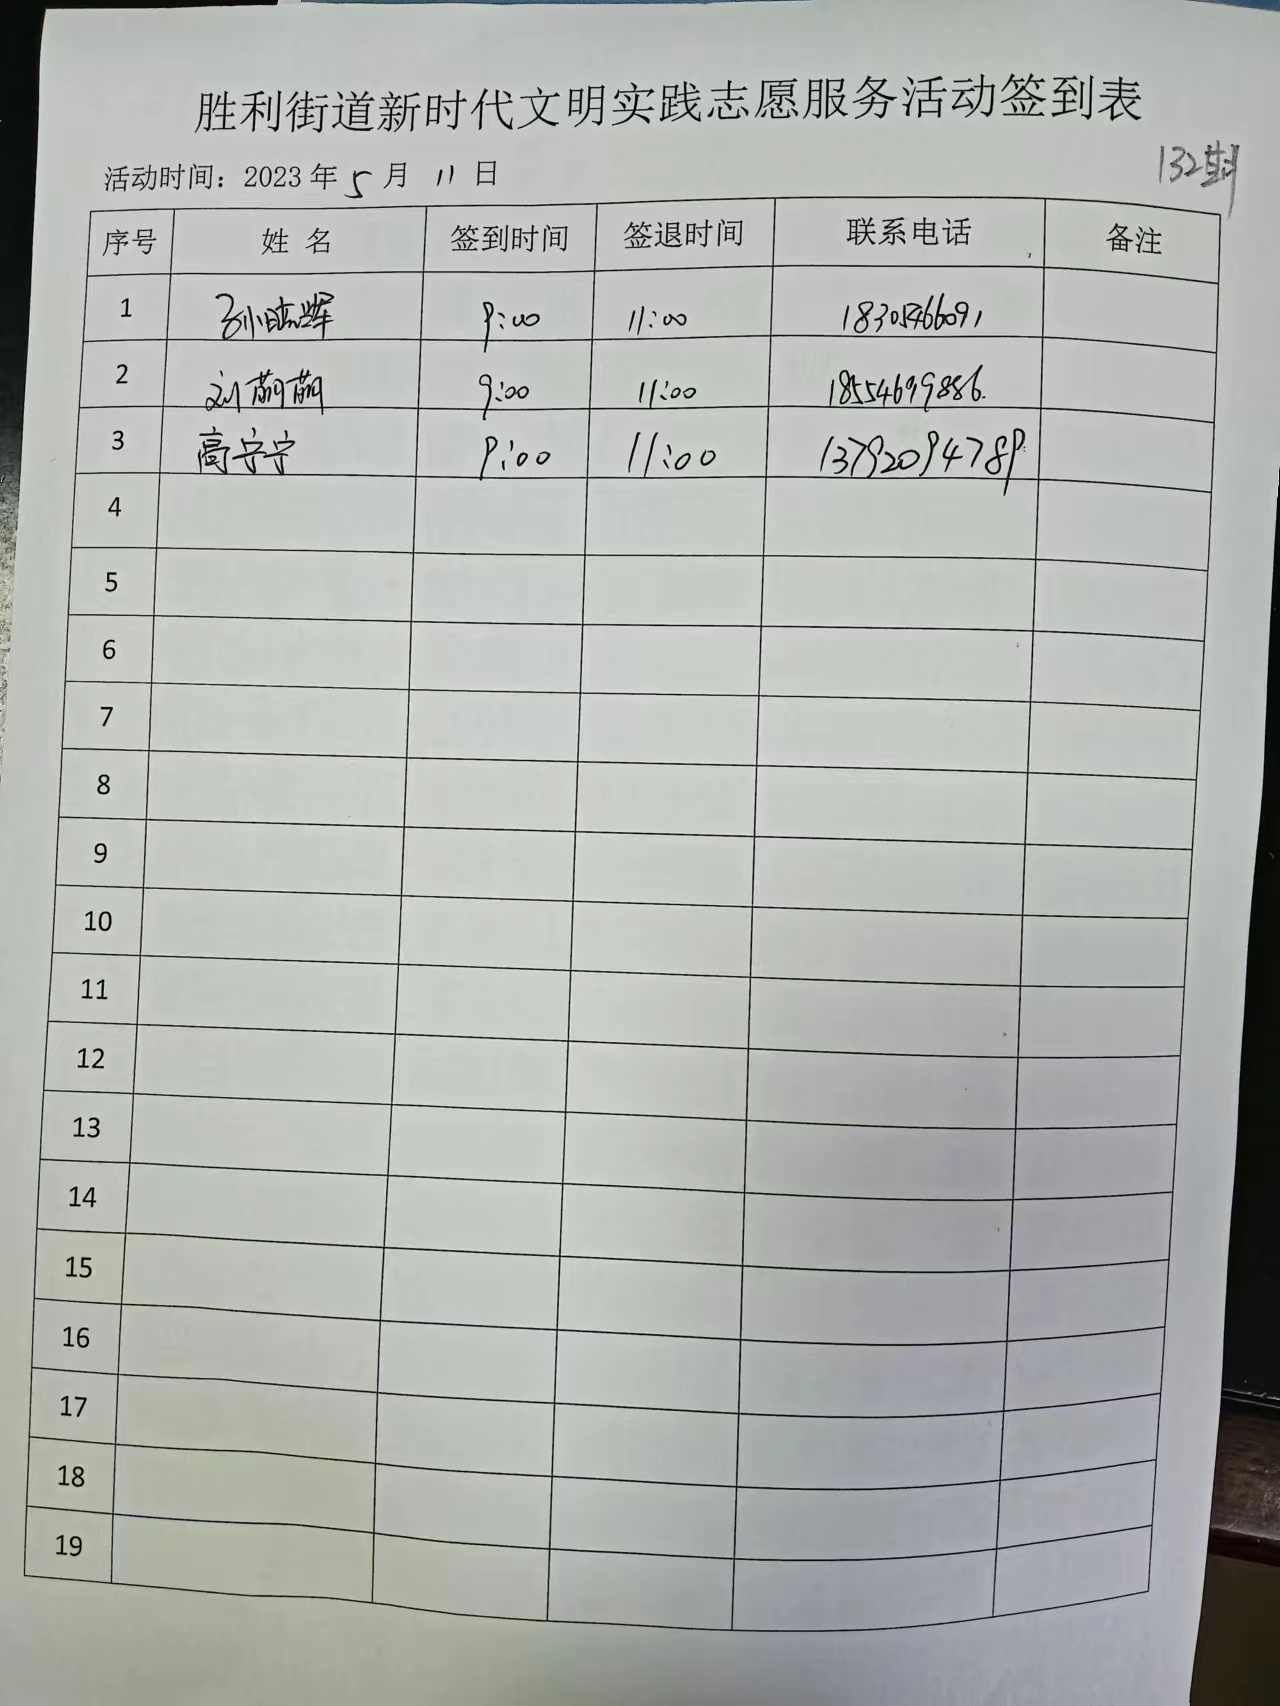 胜利街道新时代文明实践志愿服务活动签到表
132
活动时间：2023年5月11日
序号 姓名 签到时间 签退时间 联系电话 备注
1 9:00 11:00 18305466091
2 刘萌萌 9:00 11:00 18554699886
3 高宁宁 9:00 11:00 13792094789
4
5
6
7
8
9
10
11
12
13
14
15
16
17
18
19